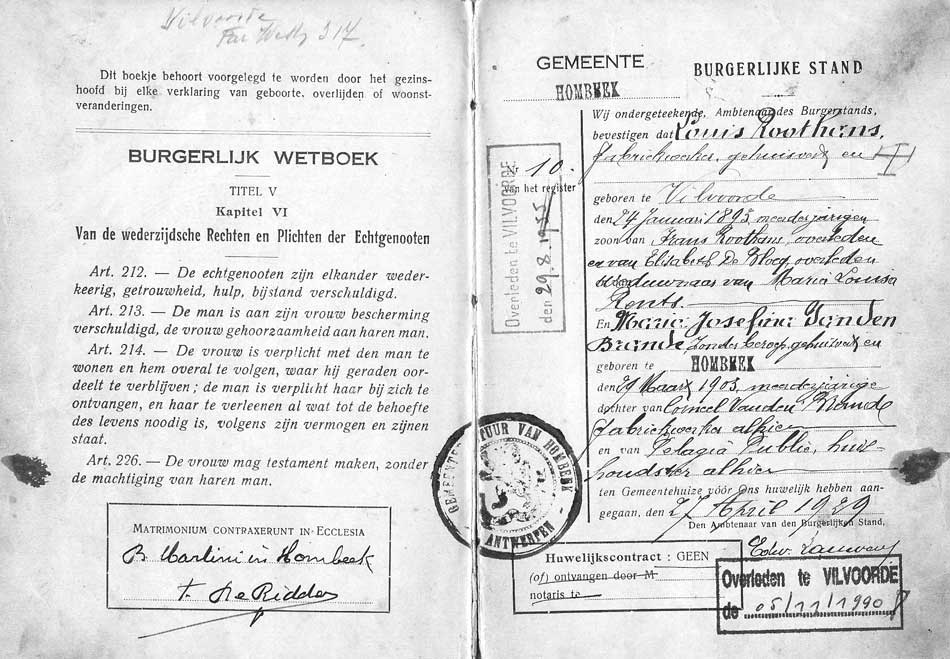 Vilvoorde
Far West 317.
Dit boekje behoort voorgelegd te worden door het gezins-
hoofd bij elke verklaring van geboorte, overlijden of woonst-
veranderingen.
BURGERLIJK WETBOEK
TITEL V
Kapitel VI
Van de wederzijdsche Rechten en Plichten der Echtgenooten
Art. 212. — De echtgenooten zijn elkander weder-
keerig, getrouwheid, hulp, bijstand verschuldigd.
Art. 213. — De man is aan zijn vrouw bescherming
verschuldigd, de vrouw gehoorzaamheid aan haren man.
Art. 214. — De vrouw is verplicht met den man te
wonen en hem overal te volgen, waar hij geraden oor-
deelt te verblijven ; de man is verplicht haar bij zich te
ontvangen, en haar te verleenen al wat tot de behoefte
des levens noodig is, volgens zijn vermogen en zijnen
staat.
Art. 226. — De vrouw mag testament maken, zonder
de machtiging van haren man.
MATRIMONIUM CONTRAXERUNT IN ECCLESIA
Martini in Hombeek
De Ridder
GEMEENTE
HOMBEEK
BURGERLIJKE STAND
Nr 10.
van het register
Overleden te VILVOORDE
den 29.8.1955
Wij ondergeteekende, Ambtenaar des Burgerstands,
bevestigen dat Louis Roothans,
fabriekwerker, gehuisvest en
geboren te Vilvoorde
den 24 Januari 1895, meerderjarigen
zoon van Frans Roothans, overleden
en van Elisabeth De Block, overleden
weduwnaar van Maria Louisa
Ronts.
En Maria Josefina Vanden
Brande, zonder beroep, gehuisvest en
geboren te HOMBEEK
den 29 Maart 1903, meerderjarige
dochter van Corneel Vanden Brande
fabriekwerker alhier
en van Pelagia Publie, huis-
houdster alhier
ten Gemeentehuize vóór Ons huwelijk hebben aan-
gegaan, den 27 April 1929
Den Ambtenaar van den Burgerlijken Stand,
Edw. Lauwens
GEMEENTEBESTUUR VAN HOMBEEK
ANTWERPEN
Huwelijkscontract : GEEN
(of) ontvangen door M
notaris te
Overleden te VILVOORDE
de 05/11/1990